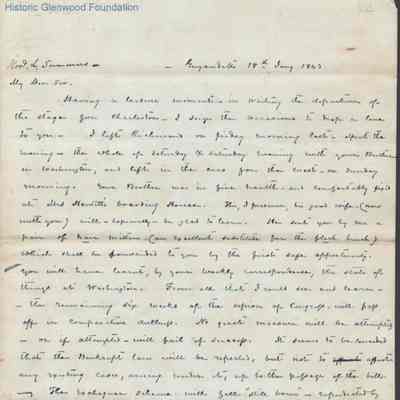 Historic Glenwood Foundation
Lewis Summers — Guyandotte 18th Jany 1843
My Dear Sir.
Having a leisure moment in waiting the departure of
the stage for Charleston — I seize the occasion to drop a line
to you — I left Richmond on friday morning last — spent the
evening — the whole of Saturday & Saturday evening with your Brother
in Washington, and left in the cars for the west on Sunday
morning. Your Brother was in fine health — and comfortably fixed
at Mrs boarding House. This, I presume, his good wife (now
with you) will especially be glad to learn. He sent you by me a
pair of mittens (an excellent substitute for the
which shall be forwarded to you by the first safe opportunity.
You will have learnt, by your weekly correspondence, the state of
things at Washington. From all that I could see and learn —
the remaining six weeks of the session of Congress will pass
off in comparative dullness. No great measure will be attempted
— or if attempted — will fail of success. It seems to be conceded
that the Bankrupt law will be repealed, but not to affect
any existing cases, arising under it, up to the passage of the bill
The Exchequer scheme will fall "still born" — repudiated by